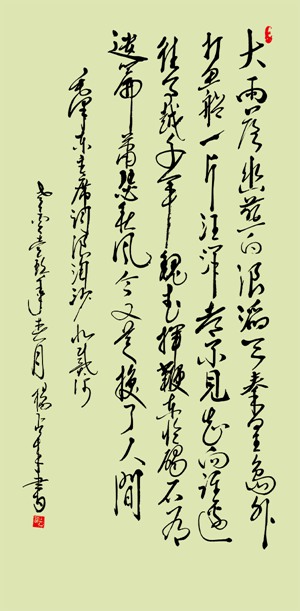 大雨落幽燕白浪滔天秦皇岛外
打鱼船一片汪洋都不见知向谁边
往事越千年魏武挥鞭东临碣石有
遗篇萧瑟秋风今又是换了人间
毛泽东主席词浪淘沙北戴河
月杨書